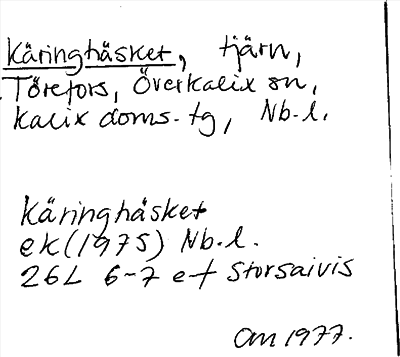 Käringhåsket, tjärn,
Törefors, Överkalix sn,
Kalix doms. tg, Nb. l.
Käringhåsket
ek (1975) Nb. l.
26L 6-7 e-f Storsaivis
OM 1977.